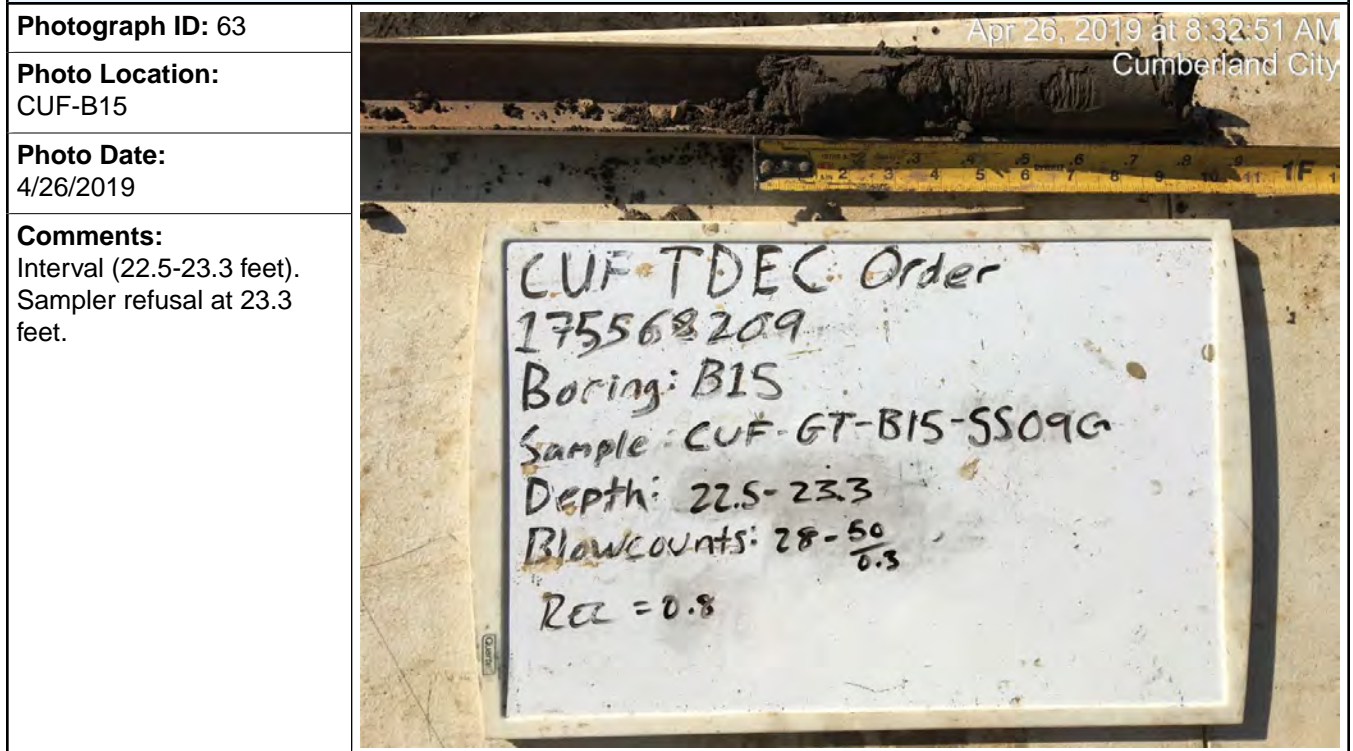 Photograph ID: 63
Photo Location:
CUF-B15
Photo Date:
4/26/2019
Comments:
Interval (22.5-23.3 feet).
Sampler refusal at 23.3
feet.
Apr 26, 2019 at 8:32:51 AM
Cumberland City
.3 .4 .5 .6 .7 .8 .9
2 3 4 5 6 7 8 9 10 11 1F 1
CUF TDEC Order
175568209
Boring: B15
Sample: CUF-GT-B15-SS09G
Depth: 22.5-23.3
Blowcounts: 28-50
0.3
REC = 0.8
Quartet